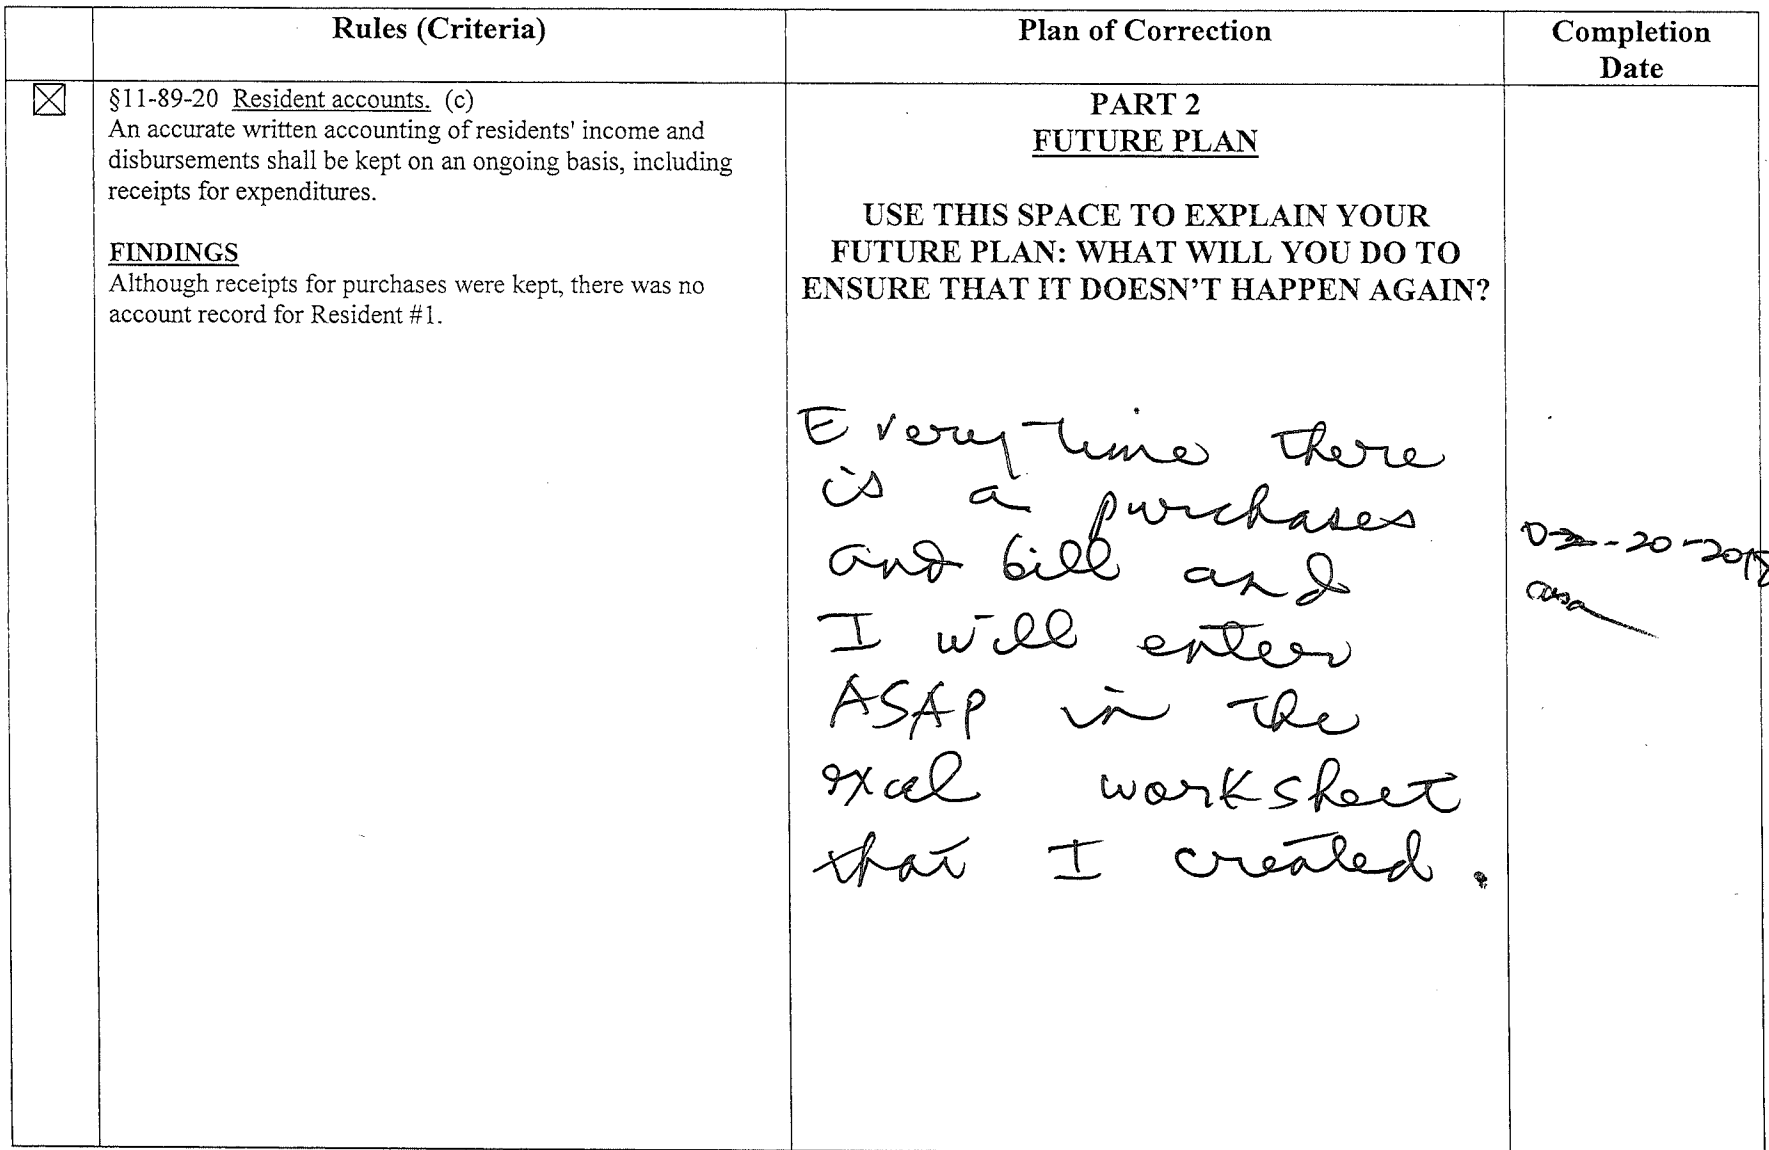 Rules (Criteria)
Plan of Correction
Completion
Date
§11-89-20 Resident accounts. (c)
An accurate written accounting of residents' income and
disbursements shall be kept on an ongoing basis, including
receipts for expenditures.
FINDINGS
Although receipts for purchases were kept, there was no
account record for Resident #1.
PART 2
FUTURE PLAN
USE THIS SPACE TO EXPLAIN YOUR
FUTURE PLAN: WHAT WILL YOU DO TO
ENSURE THAT IT DOESN'T HAPPEN AGAIN?
Every time there
is a purchases
and bill and
I will enter
ASAP in the
excel worksheet
that I created.
02-20-2018